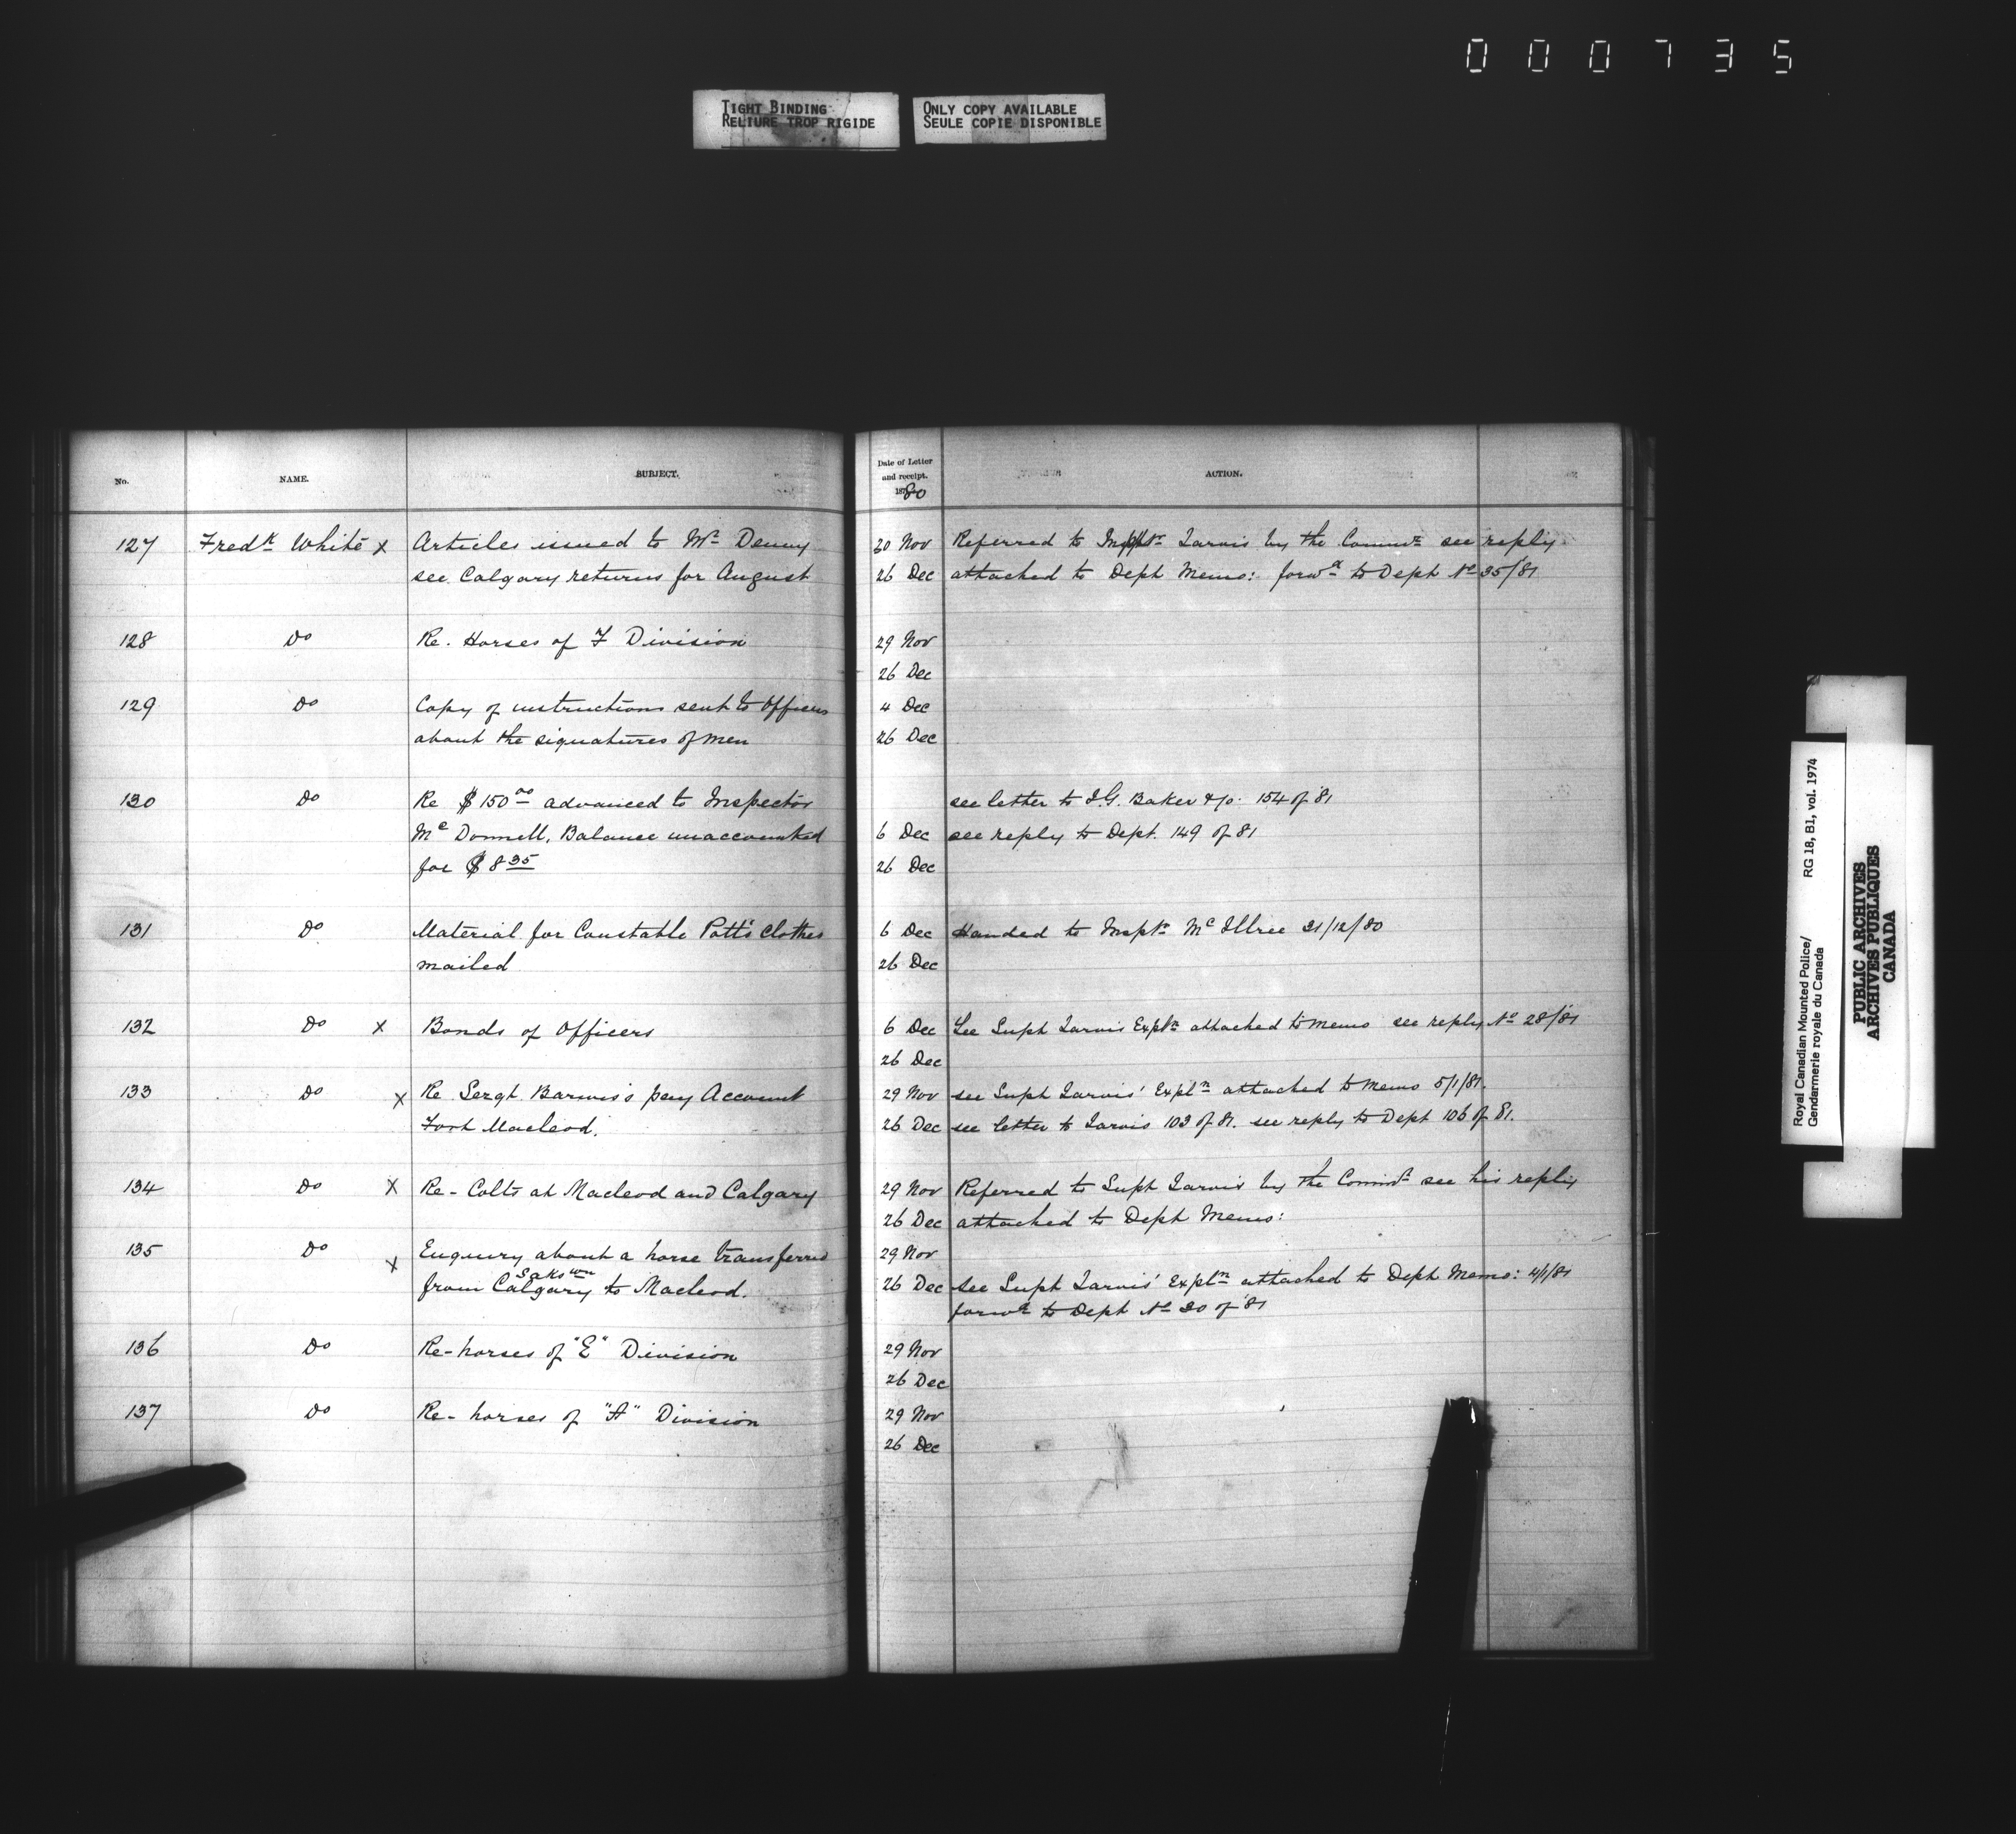 000735
TIGHT BINDING
RELIURE TROP RIGIDE
ONLY COPY AVAILABLE
SEULE COPIE DISPONIBLE
No. NAME. SUBJECT. Date of Letter and receipt. 1880 ACTION.
127 Fredk White x Articles issued to Mr Denny 30 Nov Referred to Supt Jarvis by the Commr see reply
see Calgary returns for August 26 Dec attached to Dept Memo: forwd to Dept No 35/81
128 Do Re. Horses of F Division 29 Nov
26 Dec
129 Do Copy of instructions sent to Officers 4 Dec
about the signatures of men 26 Dec
130 Do Re $150.00 advanced to Inspector see letter to I.G. Baker & Co. 154 of '81
Mc Donnell, Balance unaccounted 6 Dec see reply to Dept. 149 of 81
for $8 35 26 Dec
131 Do Material for Constable Potts clothes 6 Dec Handed to Inspr Mc Illree 31/12/80
mailed 26 Dec
132 Do x Bonds of Officers 6 Dec See Supt Jarvis Expln attached to memo see reply No 28/'81
26 Dec
133 Do x Re Sergt. Barwis's pay Account 29 Nov see Supt Jarvis' Expln attached to memo 5/1/81.
Fort Macleod. 26 Dec see letter to Jarvis 103 of 81. see reply to Dept 106 of 81.
134 Do x Re- Colts at Macleod and Calgary 29 Nov Referred to Supt Jarvis by the Commr see his reply
26 Dec attached to Dept Memo:
135 Do x Enquiry about a horse transferred 29 Nov
from Calgary to Macleod. 26 Dec See Supt Jarvis' Expln attached to Dept Memo: 4/1/81
forwd to Dept No 30 of '81
136 Do Re- horses of "E" Division 29 Nov
26 Dec
137 Do Re- horses of "A" Division 29 Nov
26 Dec
Royal Canadian Mounted Police/
Gendarmerie royale du Canada
RG 18, B1, vol. 1974
PUBLIC ARCHIVES
ARCHIVES PUBLIQUES
CANADA